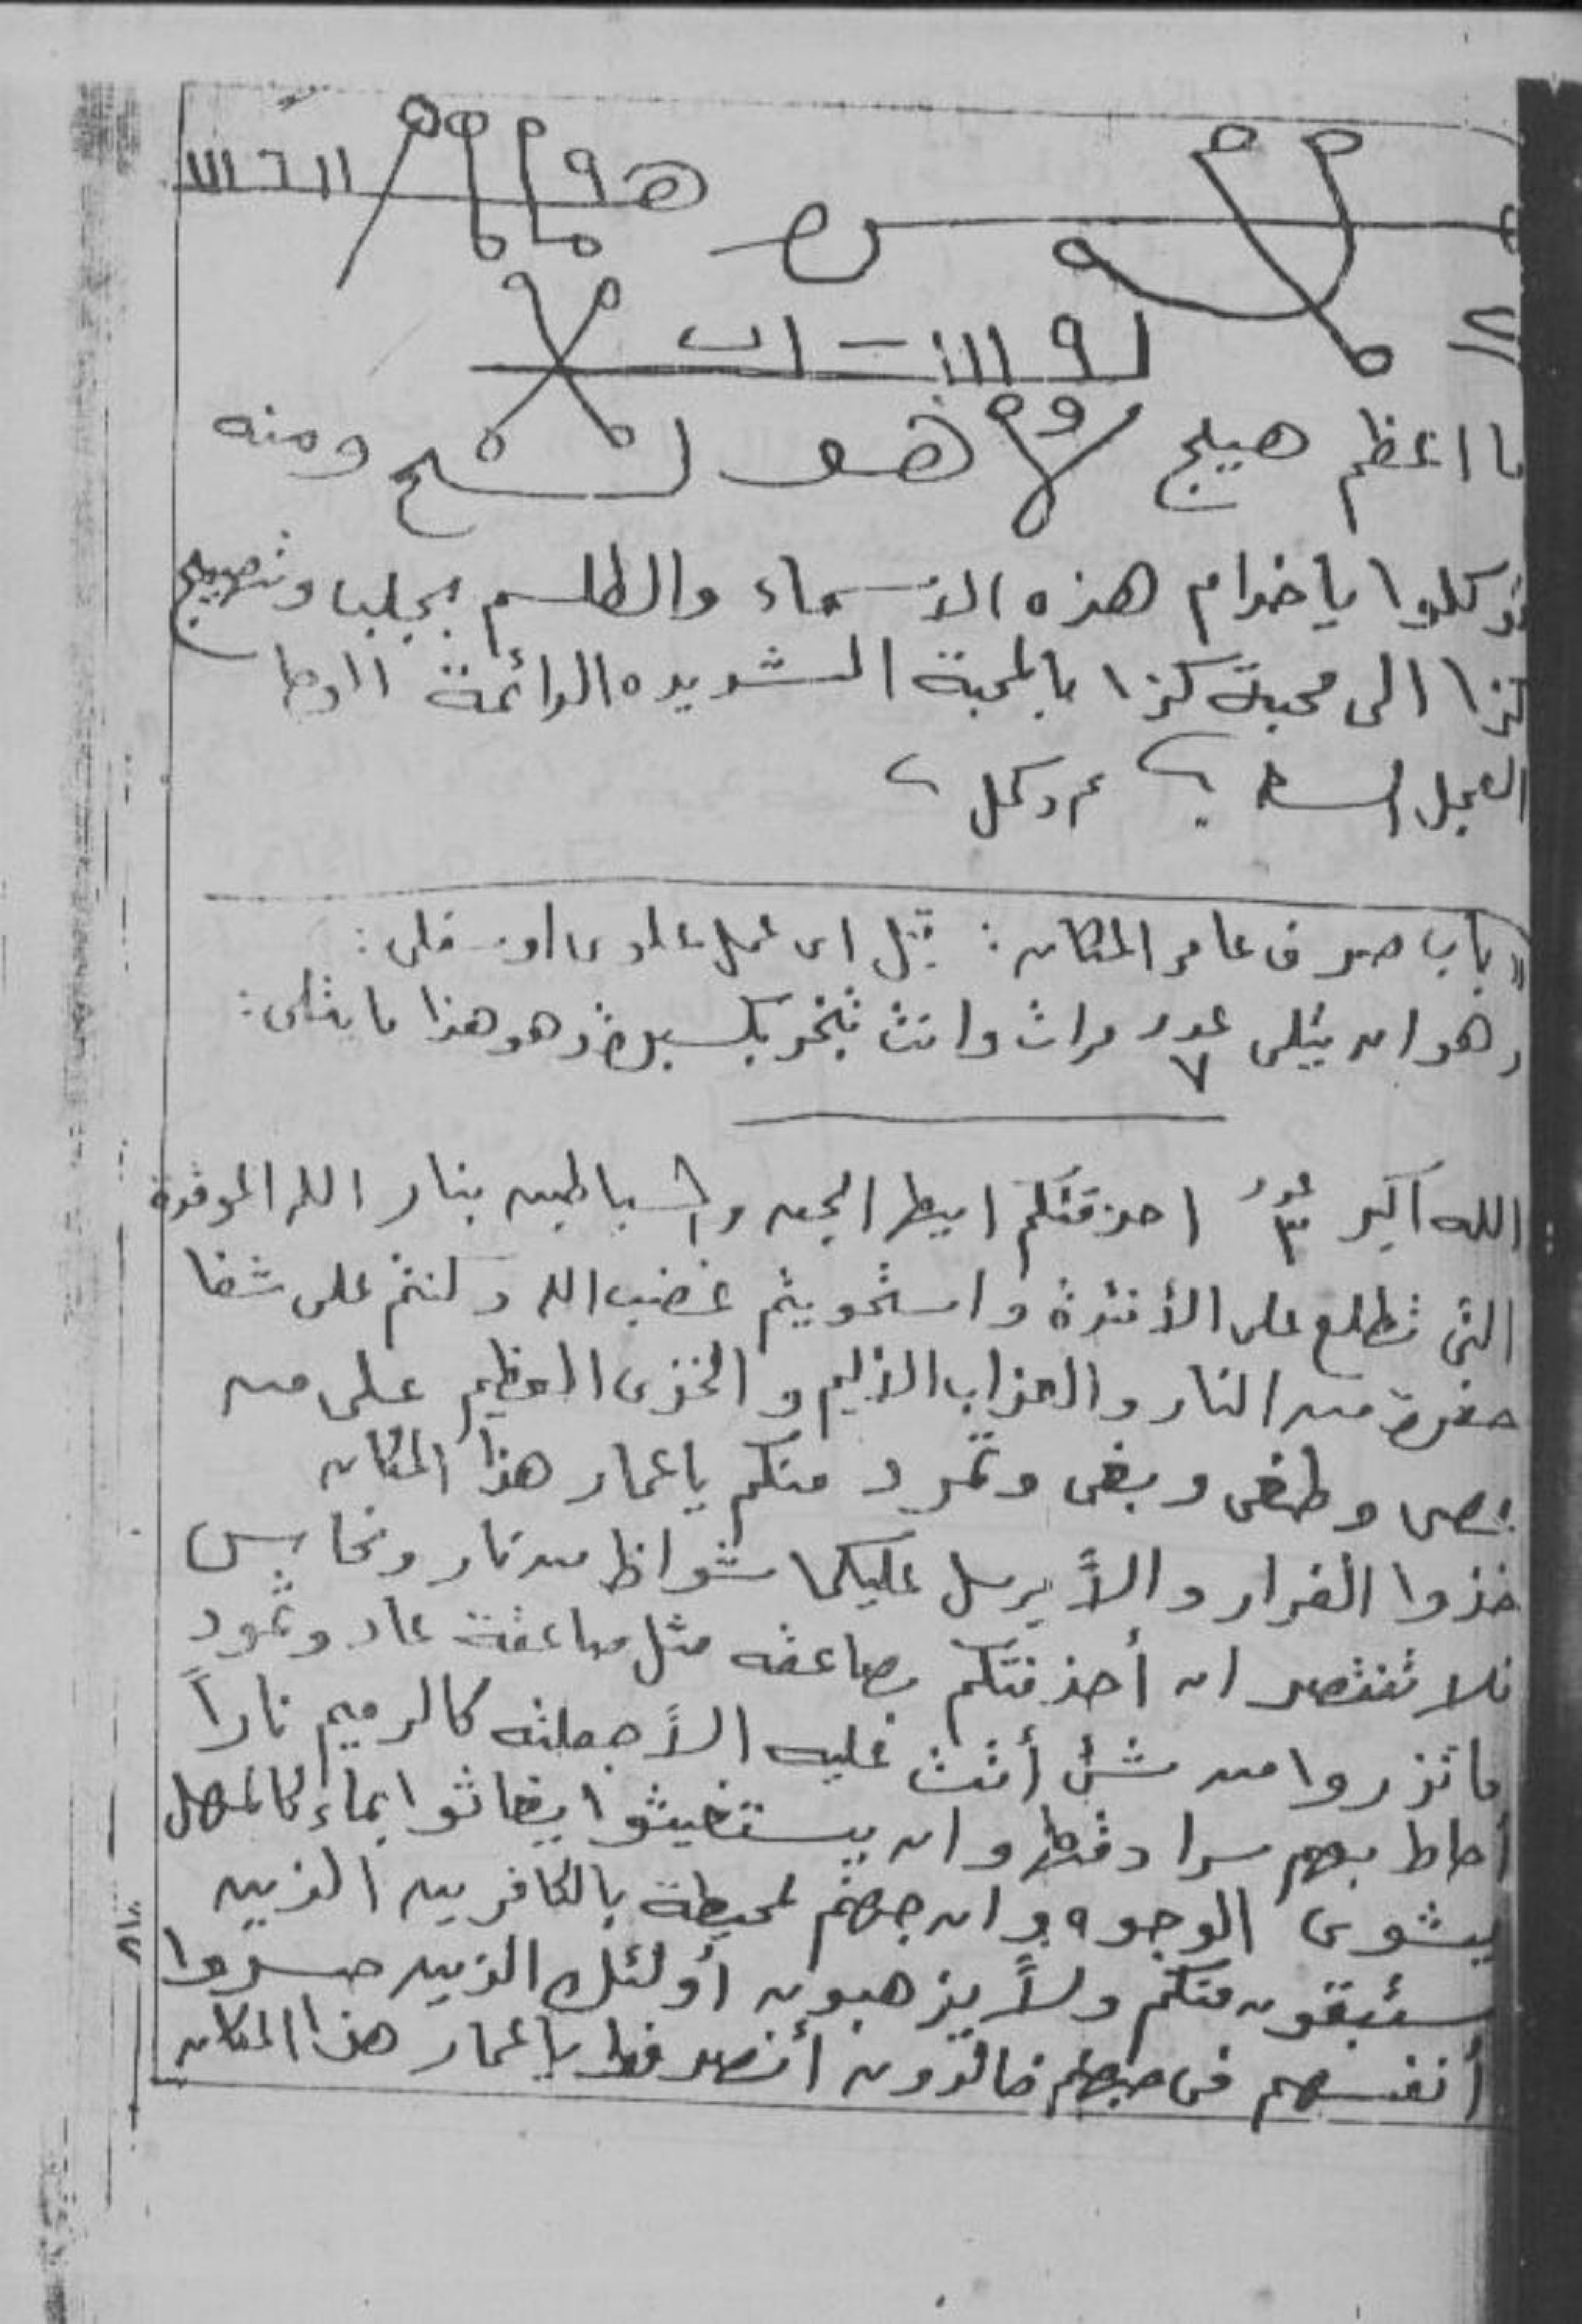 ما اعظم هيج هو لشح ومنه
توكلوا ياخدام هذه الاسماء والطلسم بجلب وتهييج
كذا الى محبة كذا بالمحبة الشديده الدائمة الوحا
العجل الساعه ٢ ٢
باب صرف عامر المكان : قبل اى عمل علوى او سفلى :
وهو ان يتلى عدد ٧ مرات وانت تبخر بكسبرة وهو هذا ما يتلى :
الله اكبر عدد ٣ احرقتكم ايها الجن والشياطين بنار الله الموقدة
التى تطلع على الأفئدة واستحويتم غضب الله وكنتم على شفا
حفرة من النار والعذاب الأليم والخزى العظيم على من
عصى وطغى وبغى وتمرد منكم ياعمار هذا المكان
خذوا الفرار والاً يرسل عليكما شواظ من نار ونحاس
فلا تنتصر ان أحذفتكم بصاعقه مثل صاعقة عاد وثمود
ما تذروا من شئ أتت عليه الاً جعلته كالرميم ناراً
أحاط بهم سرادقها وان يستغيثوا يغاثوا بماء كالمهل
يشوى الوجوه وان جهنم لمحيطة بالكافرين الذين
سيبقون منكم ولاً يذهبون أولئك الذين خسروا
أنفسهم فى جهنم خالدون أنصرفوا ياعمار هذا المكان